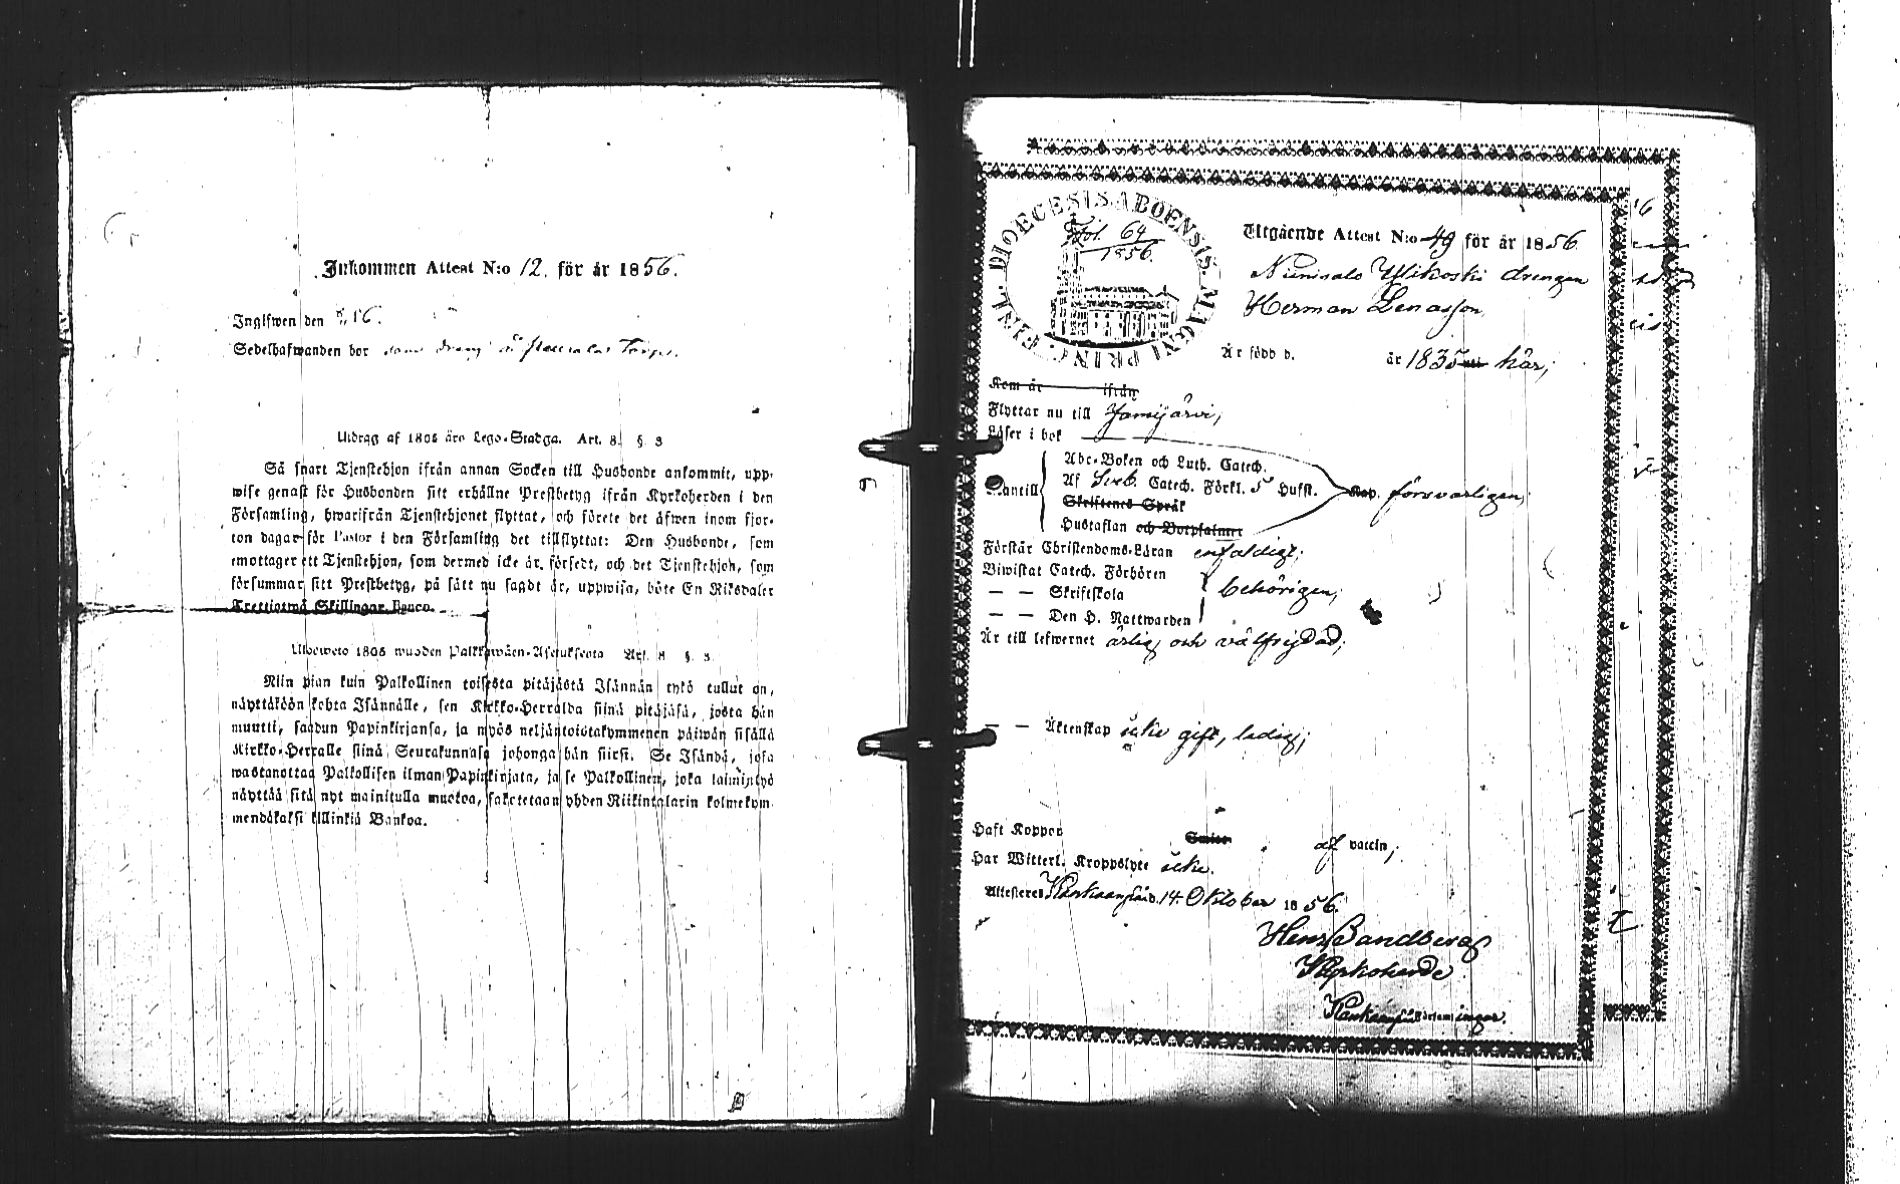 Inkommen Attest N:o 12. för år 1856.
Inglfwen den 16.
Sedelhafwanden bor som dreng å Torp.
Utdrag af 1805 års Lego-Stadga. Art. 8. § 3
Så snart Tjenstehjon ifrån annan Socken till Husbonde ankommit, upp-
wise genast för Husbonden sitt erhållne Prestbetyg ifrån Kyrkoherden i den
Församling, hwarifrån Tjenstehjonet flyttat, och förete det äfwen inom fjor-
ton dagar för Pastor i den Församling det tillflyttat: Den Husbonde, som
emottager ett Tjenstehjon, som dermed icke är försedt, och det Tjenstehjon, som
försummar sitt Prestbetyg, på sätt nu sagdt är, uppwisa, böte En Riksdaler
Trettiotwå Skillingar Banco.
Ulosweto 1805 wuoden Palkkawäen-Asetuksesta Art. 8 §. 3.
Niin pian kuin Palkollinen toisesta pitäjästä Isännän tykö tullut on,
näyttäköön kohta Isännälle, sen Kirkko-Herralda siinä pitäjäsä, josta hän
muutti, saadun Papinkirjansa, ja myös neljäntoistakymmenen päiwän sisällä
Kirkko-Herralle siinä Seurakunnasa johonga hän siirsi. Se Isändä, josa
wastanottaa Palkollisen ilman Papinkirjata, ja se Palkollinen, joka laiminlyö
näyttää sitä nyt mainitulla muotoa, sakotetaan yhden Riikintalarin kolmekym-
mendäkaksi killinkiä Bankoa.
DIOECESIS ABOENSIS. MAGNI PRINC. FINL.
Fol. 64
1856.
Utgående Attest N:o 49 för år 1856
Niinisalo Ylikoski drengen
Herman Lenasson
Är född d. år 1835 här;
Kom år ifrån
Flyttar nu till Jämijärvi;
Läser i bok
Utantill
Abc-Boken och Luth. Catech.
Af Sveb. Catech. Förkl. 5 Hufst.
Skriftenes Språk
Hustaflan och Botpsalmer
Kap. försvarligen;
Förstår Christendoms-Läran enfaldigt;
Biwistat Catech. Förhören
— — Skriftskola
behörigen;
— — Den H. Nattwarden
Är till lefwernet ärlig och välfrejdad;
— — Äktenskap icke gift, ledig;
Haft Koppor af vaccin;
Har Witterl. Kroppslyte icke.
Attesteras Kankaanpää d. 14 Oktober 1856.
Hens. Sandberg
Kyrkoherde
Kankaanpää Församlingar.